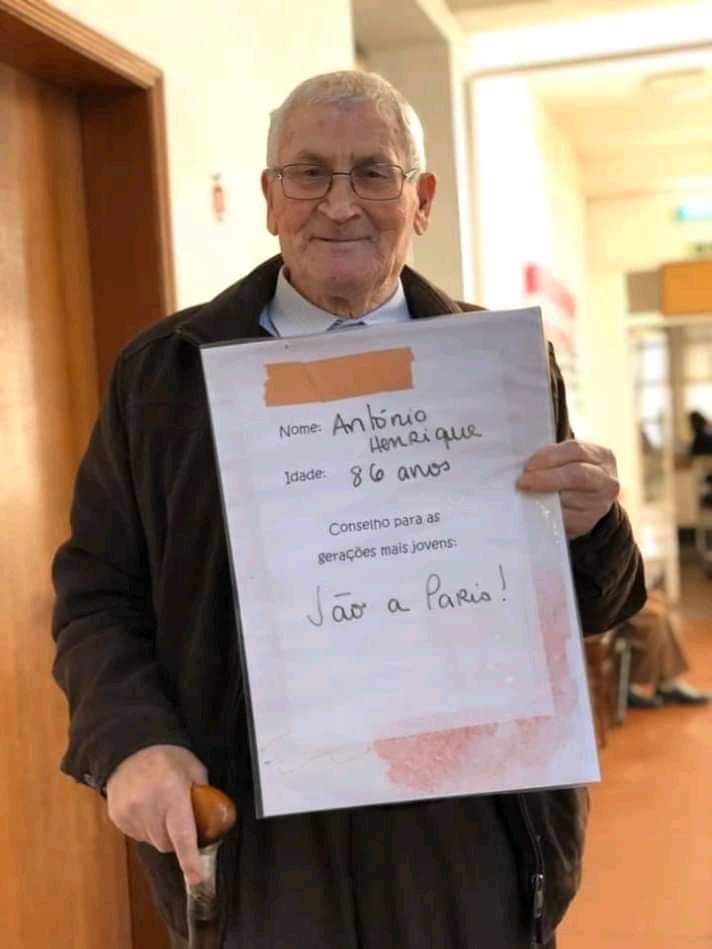 Nome: António
Henrique
Idade: 86 anos
Conselho para as
gerações mais jovens:
Vão a Paris!